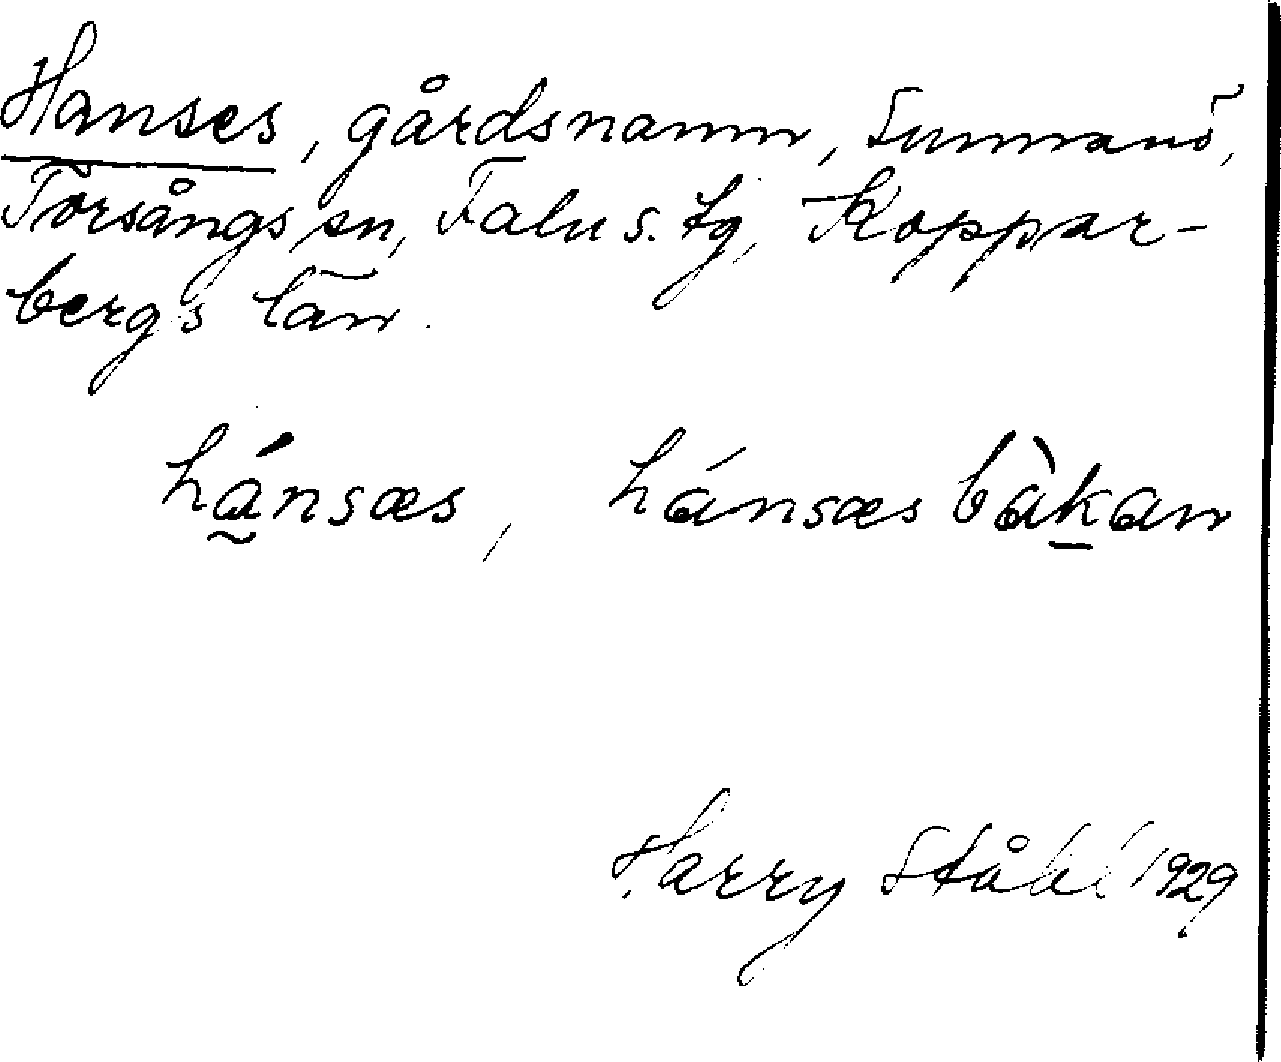 Hanses, gårdsnamn, Sunnanö,
Torsångs sn, Falu s. tg, Koppar-
bergs län.
hánsæs, hánsæs bàkan
Harry Ståhl 1929